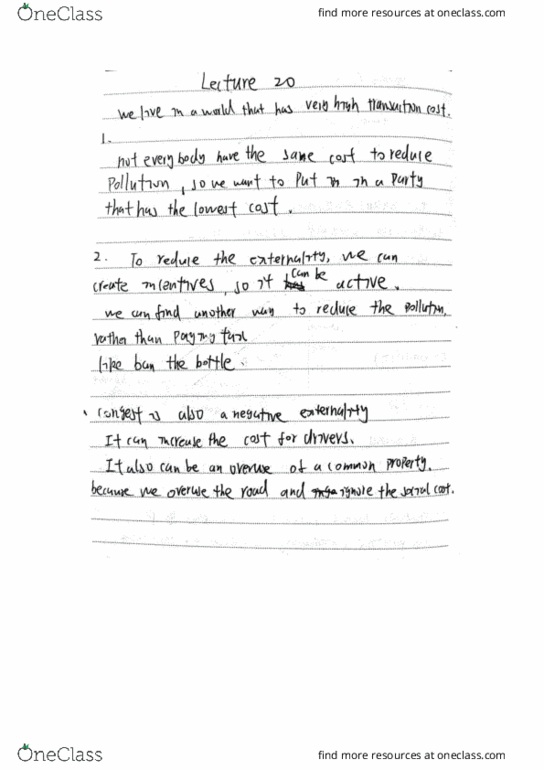 OneClass
find more resources at oneclass.com
Lecture 20
we live in a world that has very high transaction cost.
1.
not everybody have the same cost to reduce
Pollution, so we want to put in a party
that has the lowest cost.
2. To reduce the externality, we can
create incentives, so it can be active.
we can find another way to reduce the pollution,
rather than paying
like ban the bottle.
congest is also a negative externality
It can increase the cost for drivers.
It also can be an overuse of a common property,
because we overuse the road and ignore the social cost.
OneClass
find more resources at oneclass.com